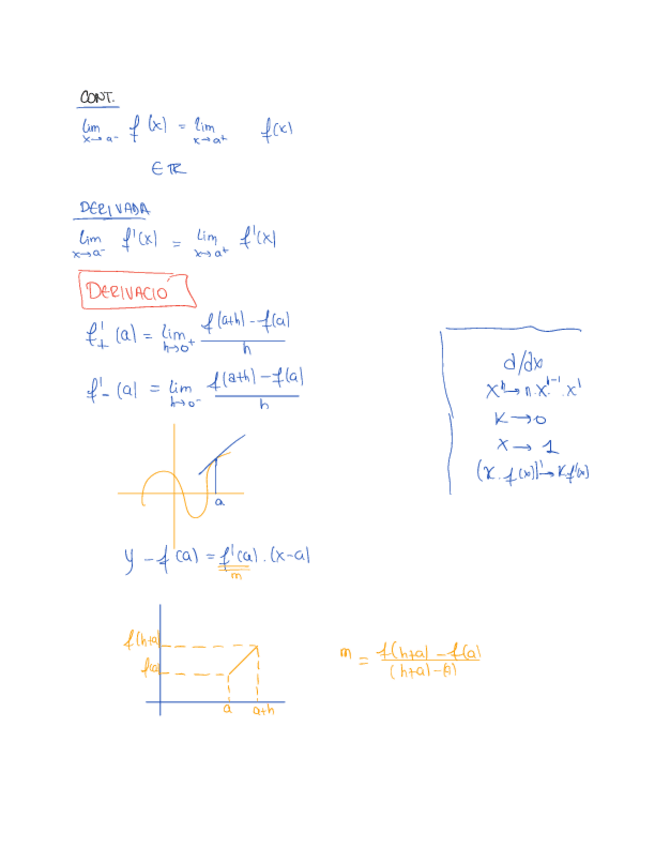 CONT.
lim x→a⁻ f(x) = lim x→a⁺ f(x)
∈ ℝ
DERIVADA
lim x→a⁻ f'(x) = lim x→a⁺ f'(x)
DERIVACIÓ
f'₊(a) = lim h→0⁺ (f(a+h) - f(a))/h
f'₋(a) = lim h→0⁻ (f(a+h) - f(a))/h
d/dx
xⁿ → n·xⁿ⁻¹·x'
K → 0
x → 1
(K·f(x))' → K f'(x)
a
y - f(a) = f'(a)·(x-a)
m
f(h+a)
f(a)
a a+h
m = (f(h+a) - f(a))/((h+a)-a)